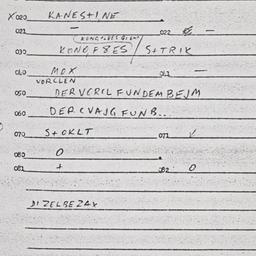 X 020 KANESTINE
021 — 022 —
030 KONGFBES / STRIK
040 MOX 041 —
VORCLEN
050 DERVCRCL FUNDEMBEJM
060 DERCVAJG FUNB..
070 STOKLT 071 √
080 0
081 + 082 0
DIZELBEZAX